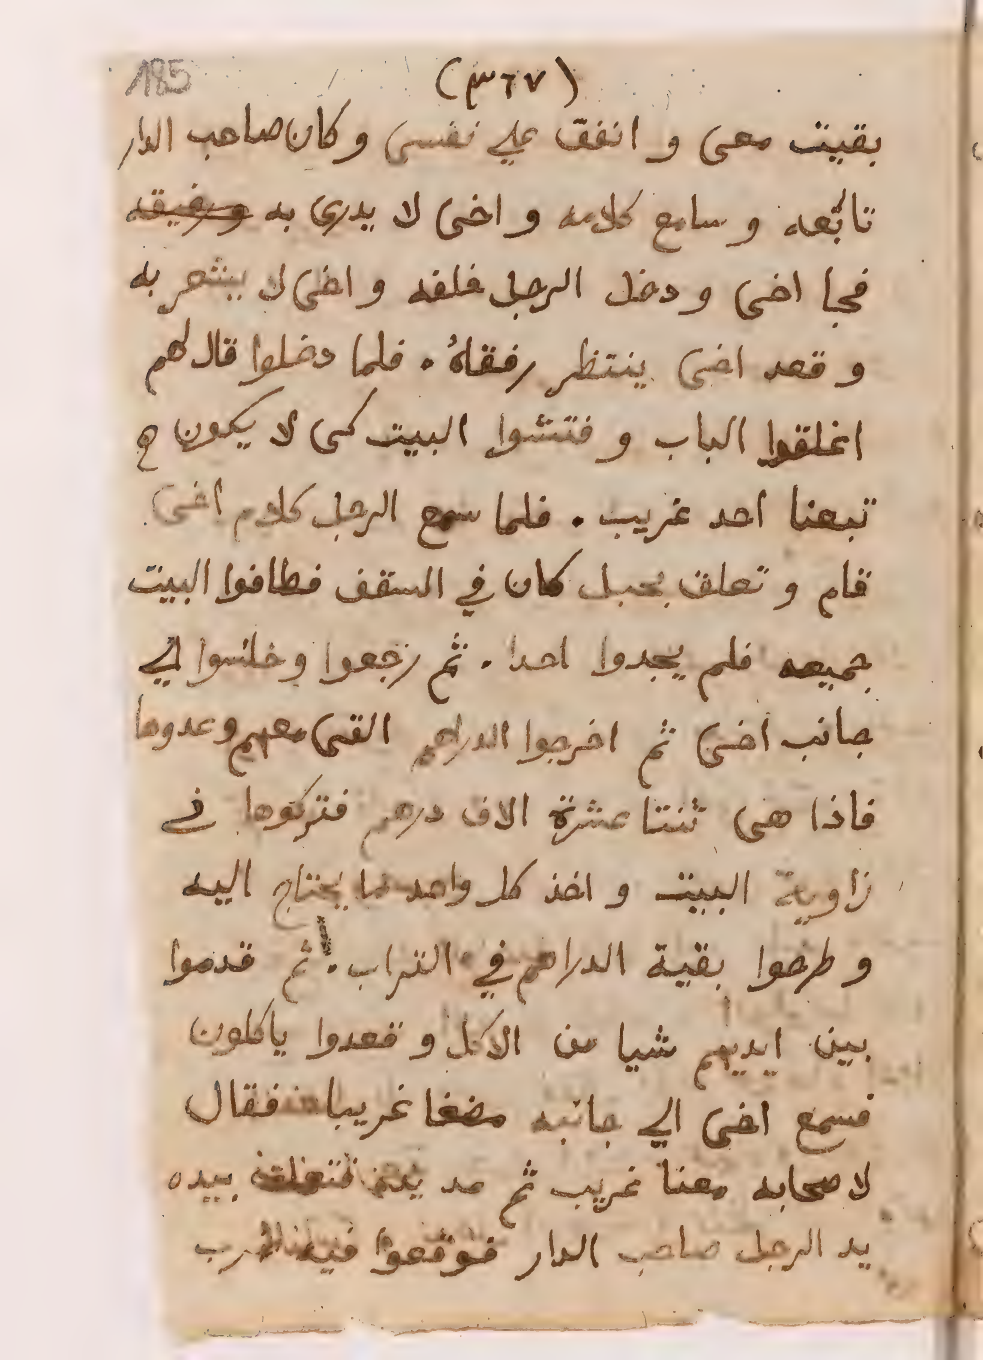 185
(٣٦٧)
بقيت معى و انفق على نفسى وكان صاحب الدار
تابعه و سامع كلامه و اخى لا يدرى به ورفيقه
فجا اخى و دخل الرجل خلفه و اخى لا يشعر به
و قعد اخى ينتظر رفقاهُ . فلما دخلوا قال لهم
اغلقوا الباب و فتشوا البيت كى لا يكون
تبعنا احد غريب . فلما سمع الرجل كلام اخى
قام و تعلق بحبل كان في السقف فطافوا البيت
جميعه فلم يجدوا احدا . ثم رجعوا وجلسوا الي
جانب اخى ثم اخرجوا الدراهم التى معهم وعدوها
فاذا هى ثنتا عشرة الاف درهم فتركوها في
زاوية البيت و اخذ كل واحد ما يحتاج اليه
و طرحوا بقية الدراهم في التراب . ثم قدموا
بين ايديهم شيا من الاكل و قعدوا ياكلون
فسمع اخى الي جانبه مضغا غريبا فقال
لاصحابه معنا غريب ثم مد يده فتعلقت بيده
يد الرجل صاحب الدار فوقعوا فيه